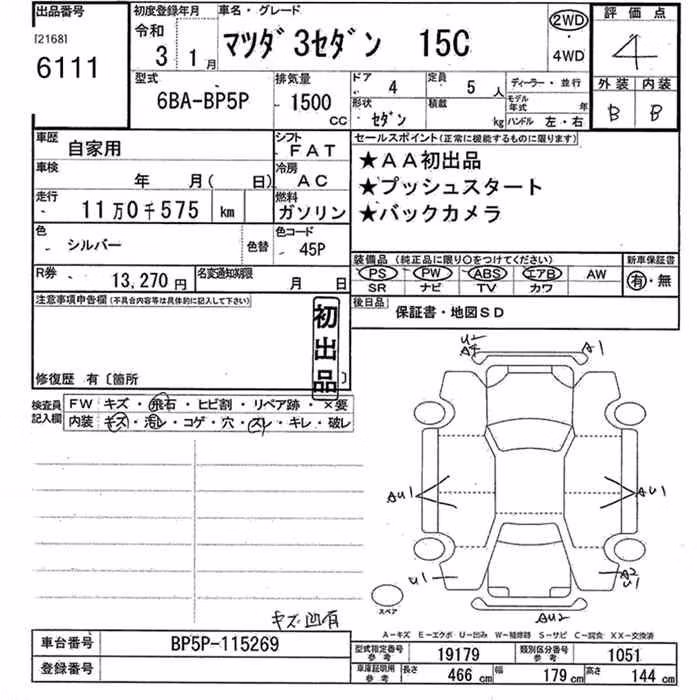 出品番号
[2168]
6111
初度登録年月
令和
3 1月
車名・グレード
マツダ3セダン 15C
2WD
・
4WD
評価点
4
外装 内装
B B
型式
6BA-BP5P
排気量
1500
CC
ドア 4
定員 5 人
形状 セダン
積載 kg
ディーラー・並行
モデル年式 年
ハンドル 左・右
車歴
自家用
シフト
FAT
車検
年 月( 日)
冷房
AC
走行
11万0千575 km
燃料
ガソリン
色
シルバー
色替
色コード
45P
セールスポイント(正常に機能するものに限ります)
★AA初出品
★プッシュスタート
★バックカメラ
装備品(純正品に限り○をつけてください)
PS PW ABS エアB AW
SR ナビ TV カワ
新車保証書
有・無
R券
13,270円
名変通知期限
月 日
後日品
保証書・地図SD
注意事項申告欄(不具合内容等は具体的に記入して下さい)
初出品
修復歴 有〔箇所 〕
検査員記入欄
FW キズ・飛石・ヒビ割・リペア跡・×要
内装 キズ・汚レ・コゲ・穴・スレ・キレ・破レ
U2
A4
A1
AU1
AU1
U1
A2
U1
AU2
スペア
キズ凹有
A-キズ E-エクボ U-凹み W-補修跡 S-サビ C-腐食 XX-交換済
車台番号
BP5P-115269
登録番号
型式指定番号
参考
19179
類別区分番号
参考
1051
車庫証明用
参考
長さ 466 cm
幅 179 cm
高さ 144 cm